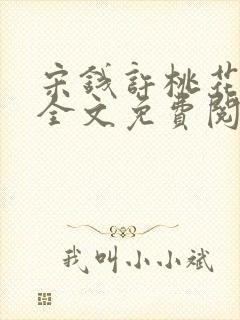 宋钱許桃花
全文免費閱
我叫小小斌